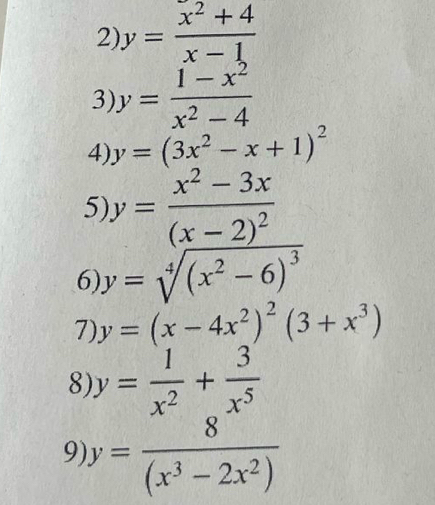 2)y = (x² + 4)/(x − 1)
3)y = (1 − x²)/(x² − 4)
4)y = (3x² − x + 1)²
5)y = (x² − 3x)/(x − 2)²
6)y = ⁴√(x² − 6)³
7)y = (x − 4x²)² (3 + x³)
8)y = 1/x² + 3/x⁵
9)y = 8/(x³ − 2x²)